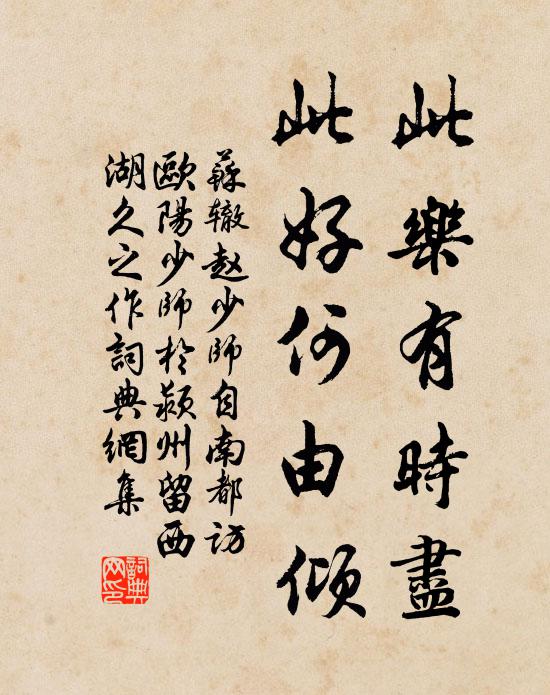 此樂有時盡
此好何由傾
蘇辙赵少師自南都訪
歐陽少師於颍州留西
湖久之作詞典網集
詞典网印